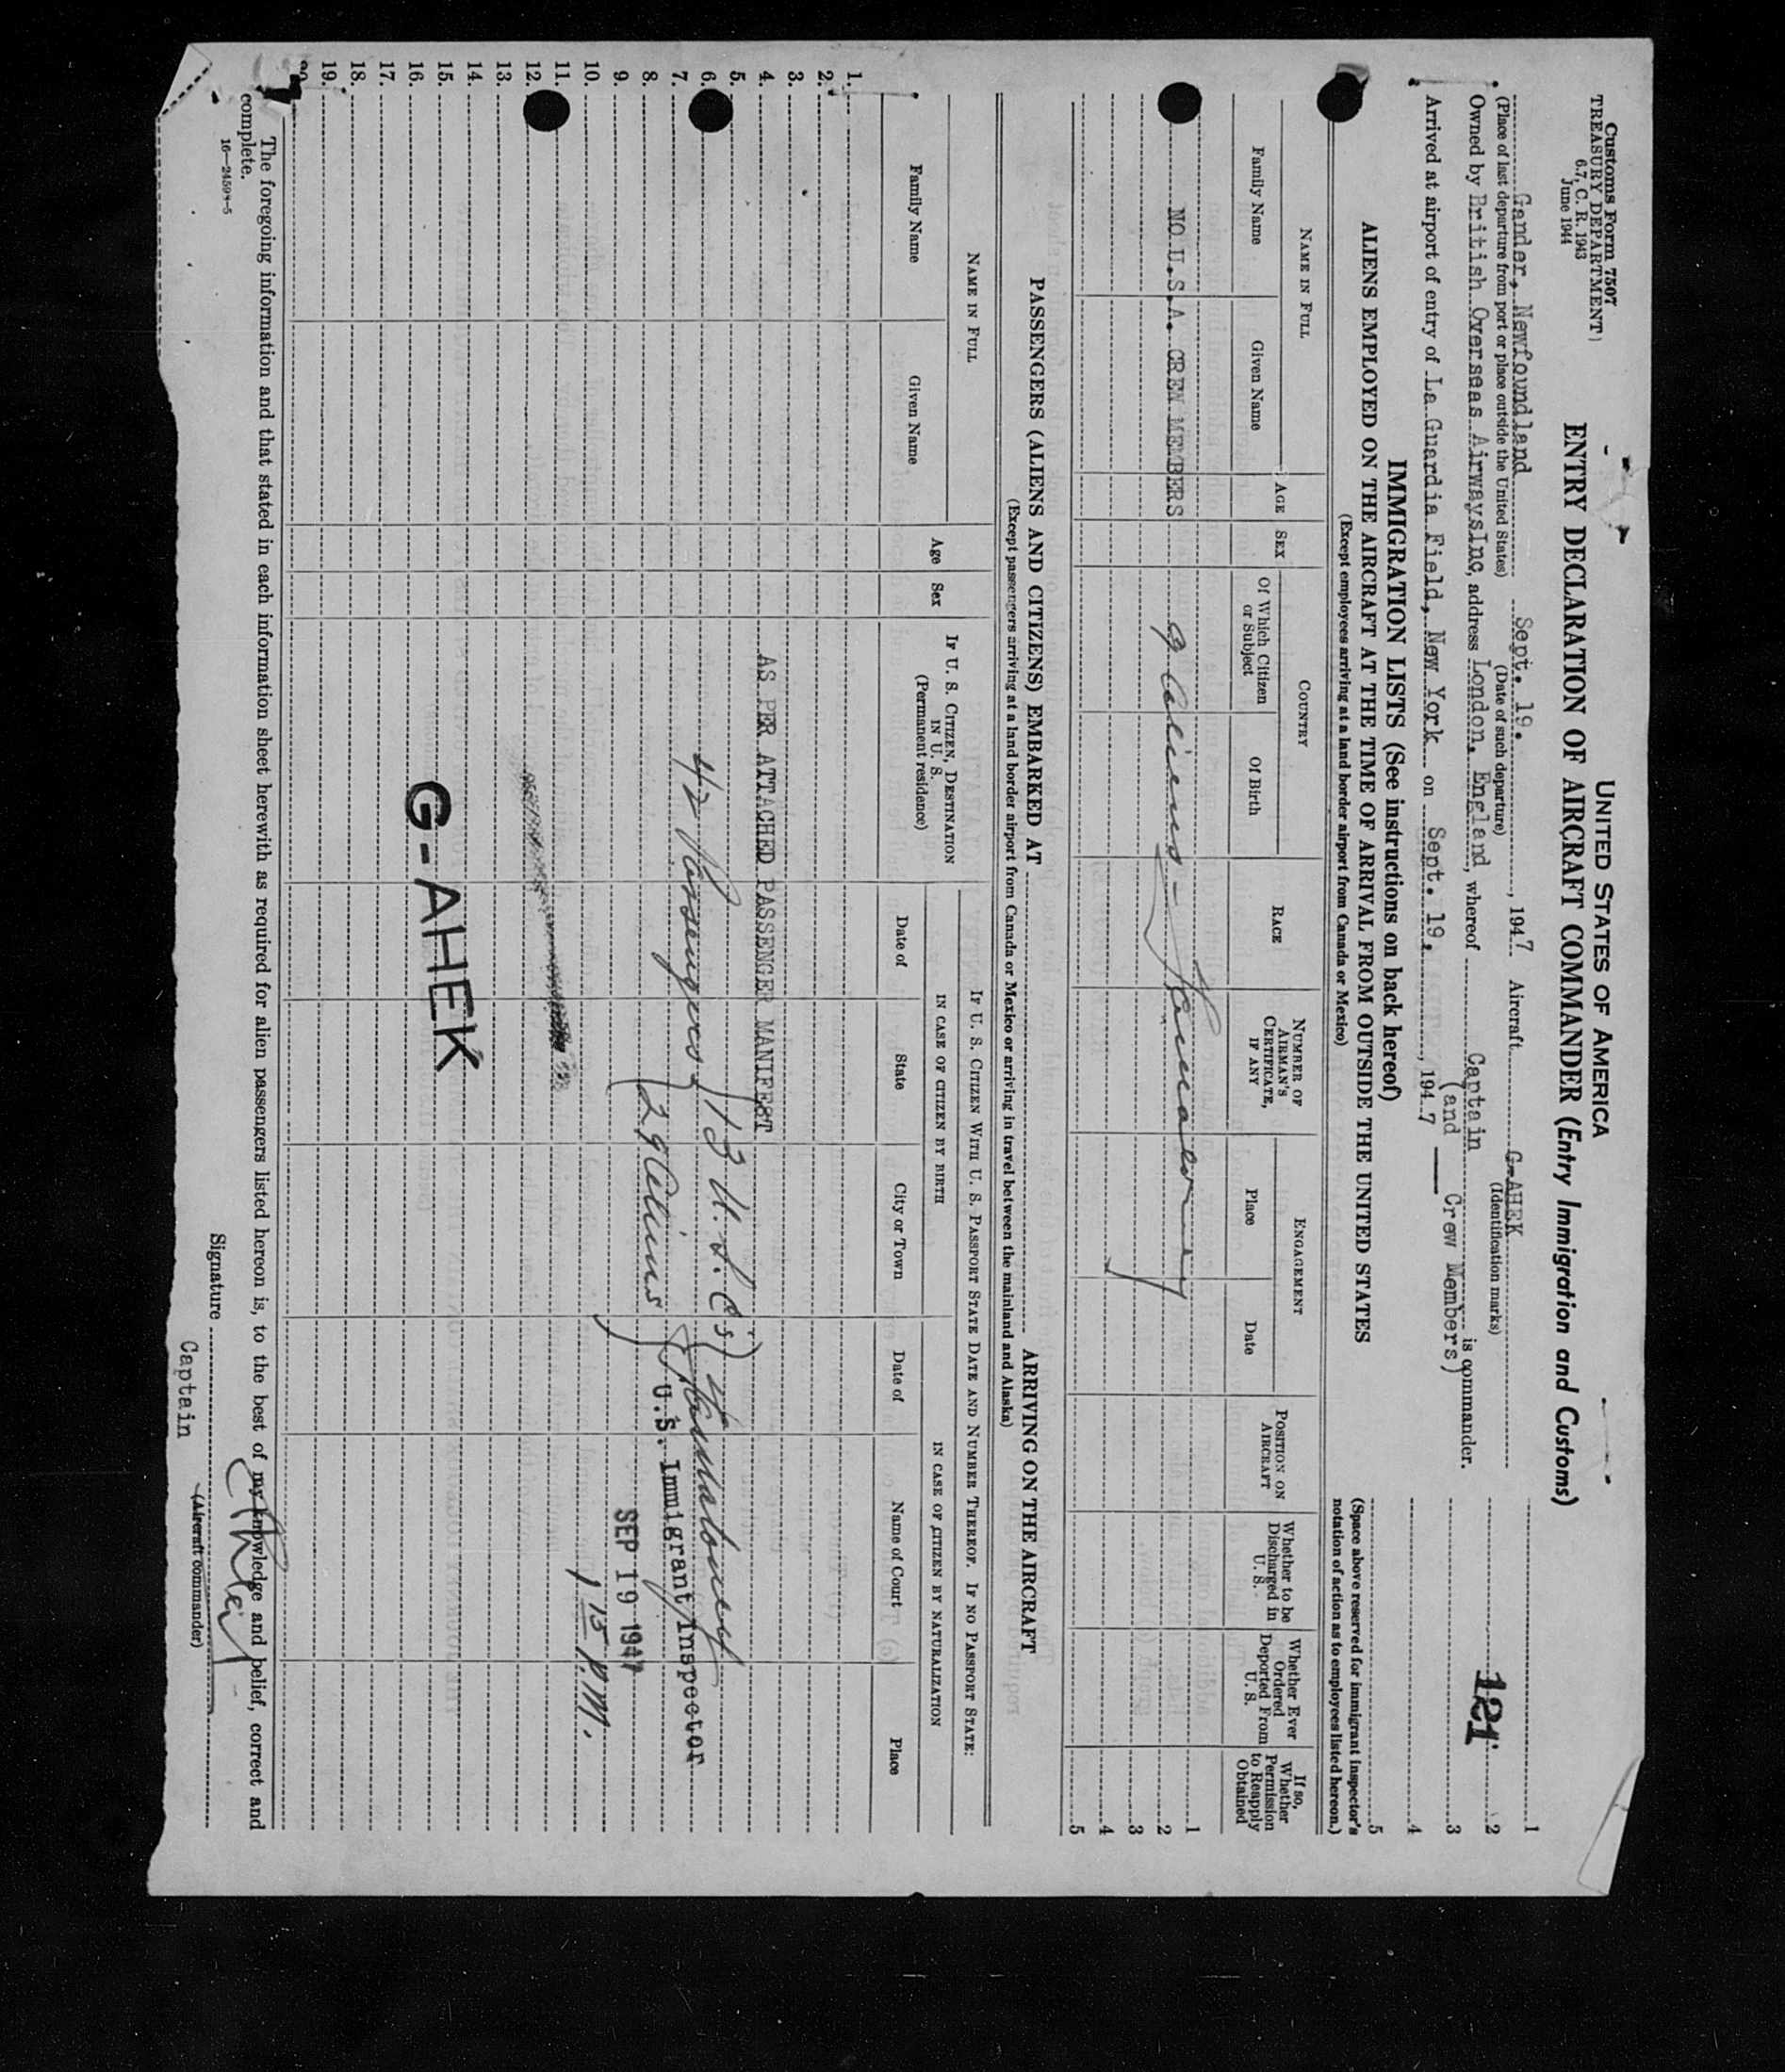 Customs Form 7507
TREASURY DEPARTMENT
6.7, C. R. 1943
June 1944
UNITED STATES OF AMERICA
ENTRY DECLARATION OF AIRCRAFT COMMANDER (Entry Immigration and Customs)
Gander, Newfoundland Sept. 19. , 1947 Aircraft G-AHEK
(Place of last departure from port or place outside the United States) (Date of such departure) (Identification marks)
Owned by British Overseas Airways Inc, address London, England, whereof Captain is commander.
(and Crew Members)
Arrived at airport of entry of La Guardia Field, New York on Sept. 19, , 1947
1
2
121
3
4
5
(Space above reserved for immigrant inspector's notation of action as to employees listed hereon.)
IMMIGRATION LISTS (See instructions on back hereof)
ALIENS EMPLOYED ON THE AIRCRAFT AT THE TIME OF ARRIVAL FROM OUTSIDE THE UNITED STATES
(Except employees arriving at a land border airport from Canada or Mexico)
NAME IN FULL
Family Name
Given Name
AGE
SEX
COUNTRY
Of Which Citizen or Subject
Of Birth
RACE
NUMBER OF AIRMAN'S CERTIFICATE, IF ANY
ENGAGEMENT
Place
Date
POSITION ON AIRCRAFT
Whether to be Discharged in U. S.
Whether Ever Ordered Deported From U. S.
If so, Whether Permission to Reapply Obtained
1
NO U.S.A. CREW MEMBERS 9 Aliens - 2
3
4
5
PASSENGERS (ALIENS AND CITIZENS) EMBARKED AT ARRIVING ON THE AIRCRAFT
(Except passengers arriving at a land border airport from Canada or Mexico or arriving in travel between the mainland and Alaska)
NAME IN FULL
Family Name
Given Name
Age
Sex
IF U. S. CITIZEN, DESTINATION IN U. S.
(Permanent residence)
IF U. S. CITIZEN WITH U. S. PASSPORT STATE DATE AND NUMBER THEREOF. IF NO PASSPORT STATE:
IN CASE OF CITIZEN BY BIRTH
Date of
State
City or Town
IN CASE OF CITIZEN BY NATURALIZATION
Date of
Name of Court
Place
1.
2.
3.
4. AS PER ATTACHED PASSENGER MANIFEST
5.
6. 42 Passengers 13 U.S.C's
7. U.S. Immigrant Inspector
8. 29 Aliens
9. SEP 19 1947
10. 1 15 P.M.
11.
12.
13.
14.
15. G-AHEK
16.
17.
18.
19.
20.
The foregoing information and that stated in each information sheet herewith as required for alien passengers listed hereon is, to the best of my knowledge and belief, correct and
complete.
16—24598-5
Signature
Captain (Aircraft commander)